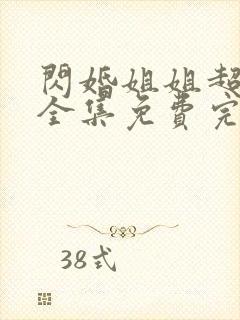 閃婚姐姐超
全集免費完
38式